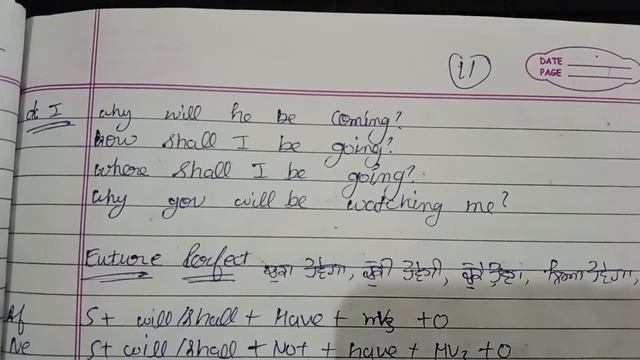 11
DATE
PAGE
dt I why will he be coming?
how shall I be going?
where shall I be going?
why you will be watching me?
Future Perfect ਚੁਕਾ ਹੋਵੇਗਾ, ਚੁੱਕੀ ਹੋਵੇਗੀ, ਚੁੱਕੇ ਹੋਵੇਗਾ, ਗਿਆ ਹੋਵੇਗਾ,
Af S+ will/shall + Have + mV3 +O
Ne S+ will/shall + Not + have + MV3 +O